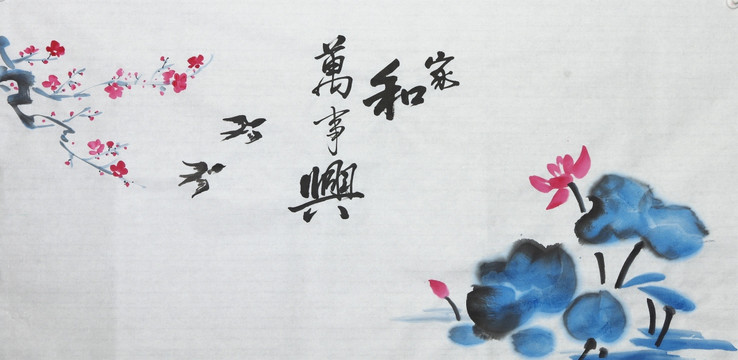 家和
萬事興